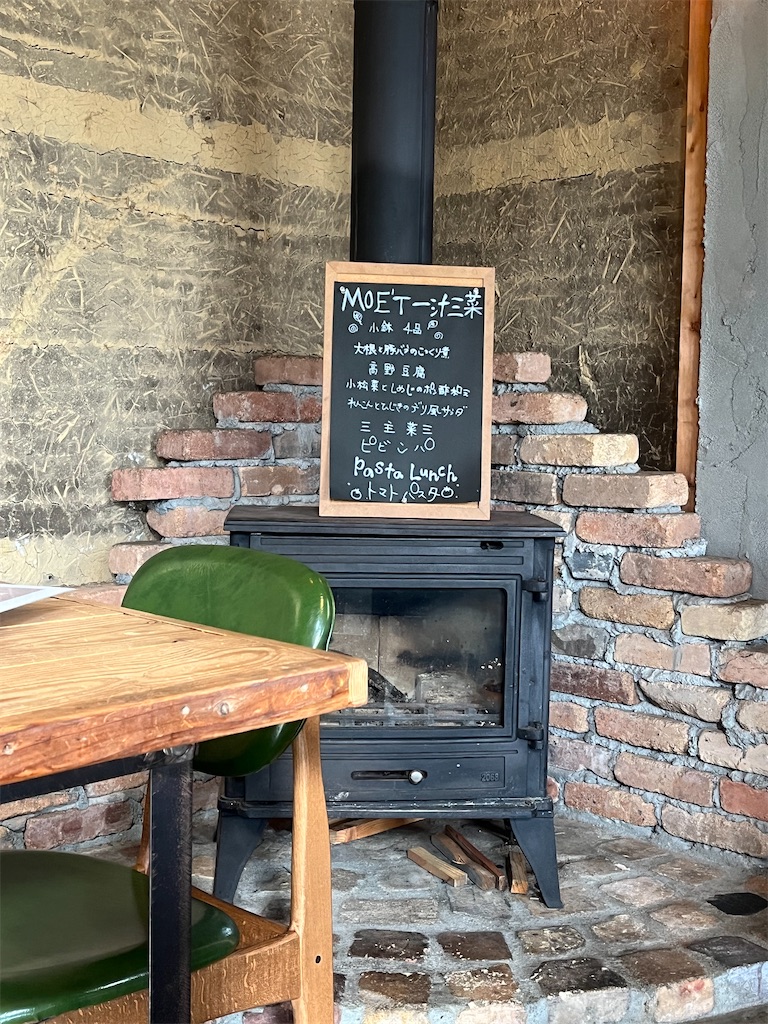 MOE'T 一汁三菜
小鉢 4品
大根と豚バラのこっくり煮
高野豆腐
小松菜としめじのポン酢和え
れんこんとひじきのデリ風サラダ
三 主菜 三
ビビンバ
Pasta Lunch
トマトパスタ
2058